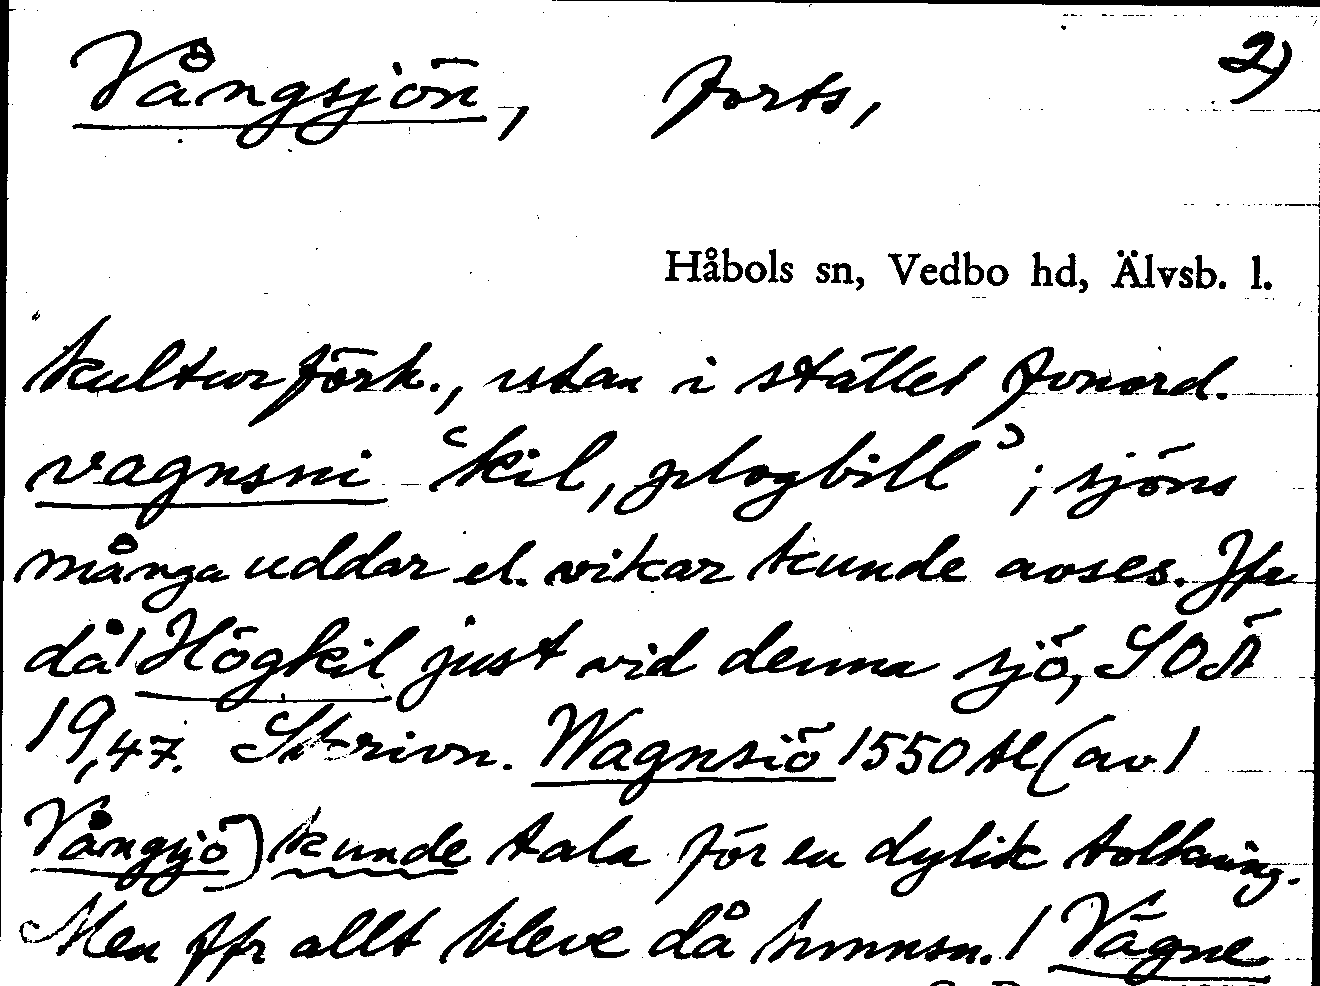 Vångsjön, forts, 2)
Håbols sn, Vedbo hd, Älvsb. l.
kulturförh., utan i stället fvnord.
vagnsni 'kil, plogbill'; sjöns
många uddar el. vikar kunde avses. Jfr
då! Högkil just vid denna sjö, SOÄ
19,47. Skrivn. Wagnsiö 1550 tl (av!
Vångsjö) kunde tala för en dylik tolkning.
Men ffr allt bleve då hmnsn.! Vågne